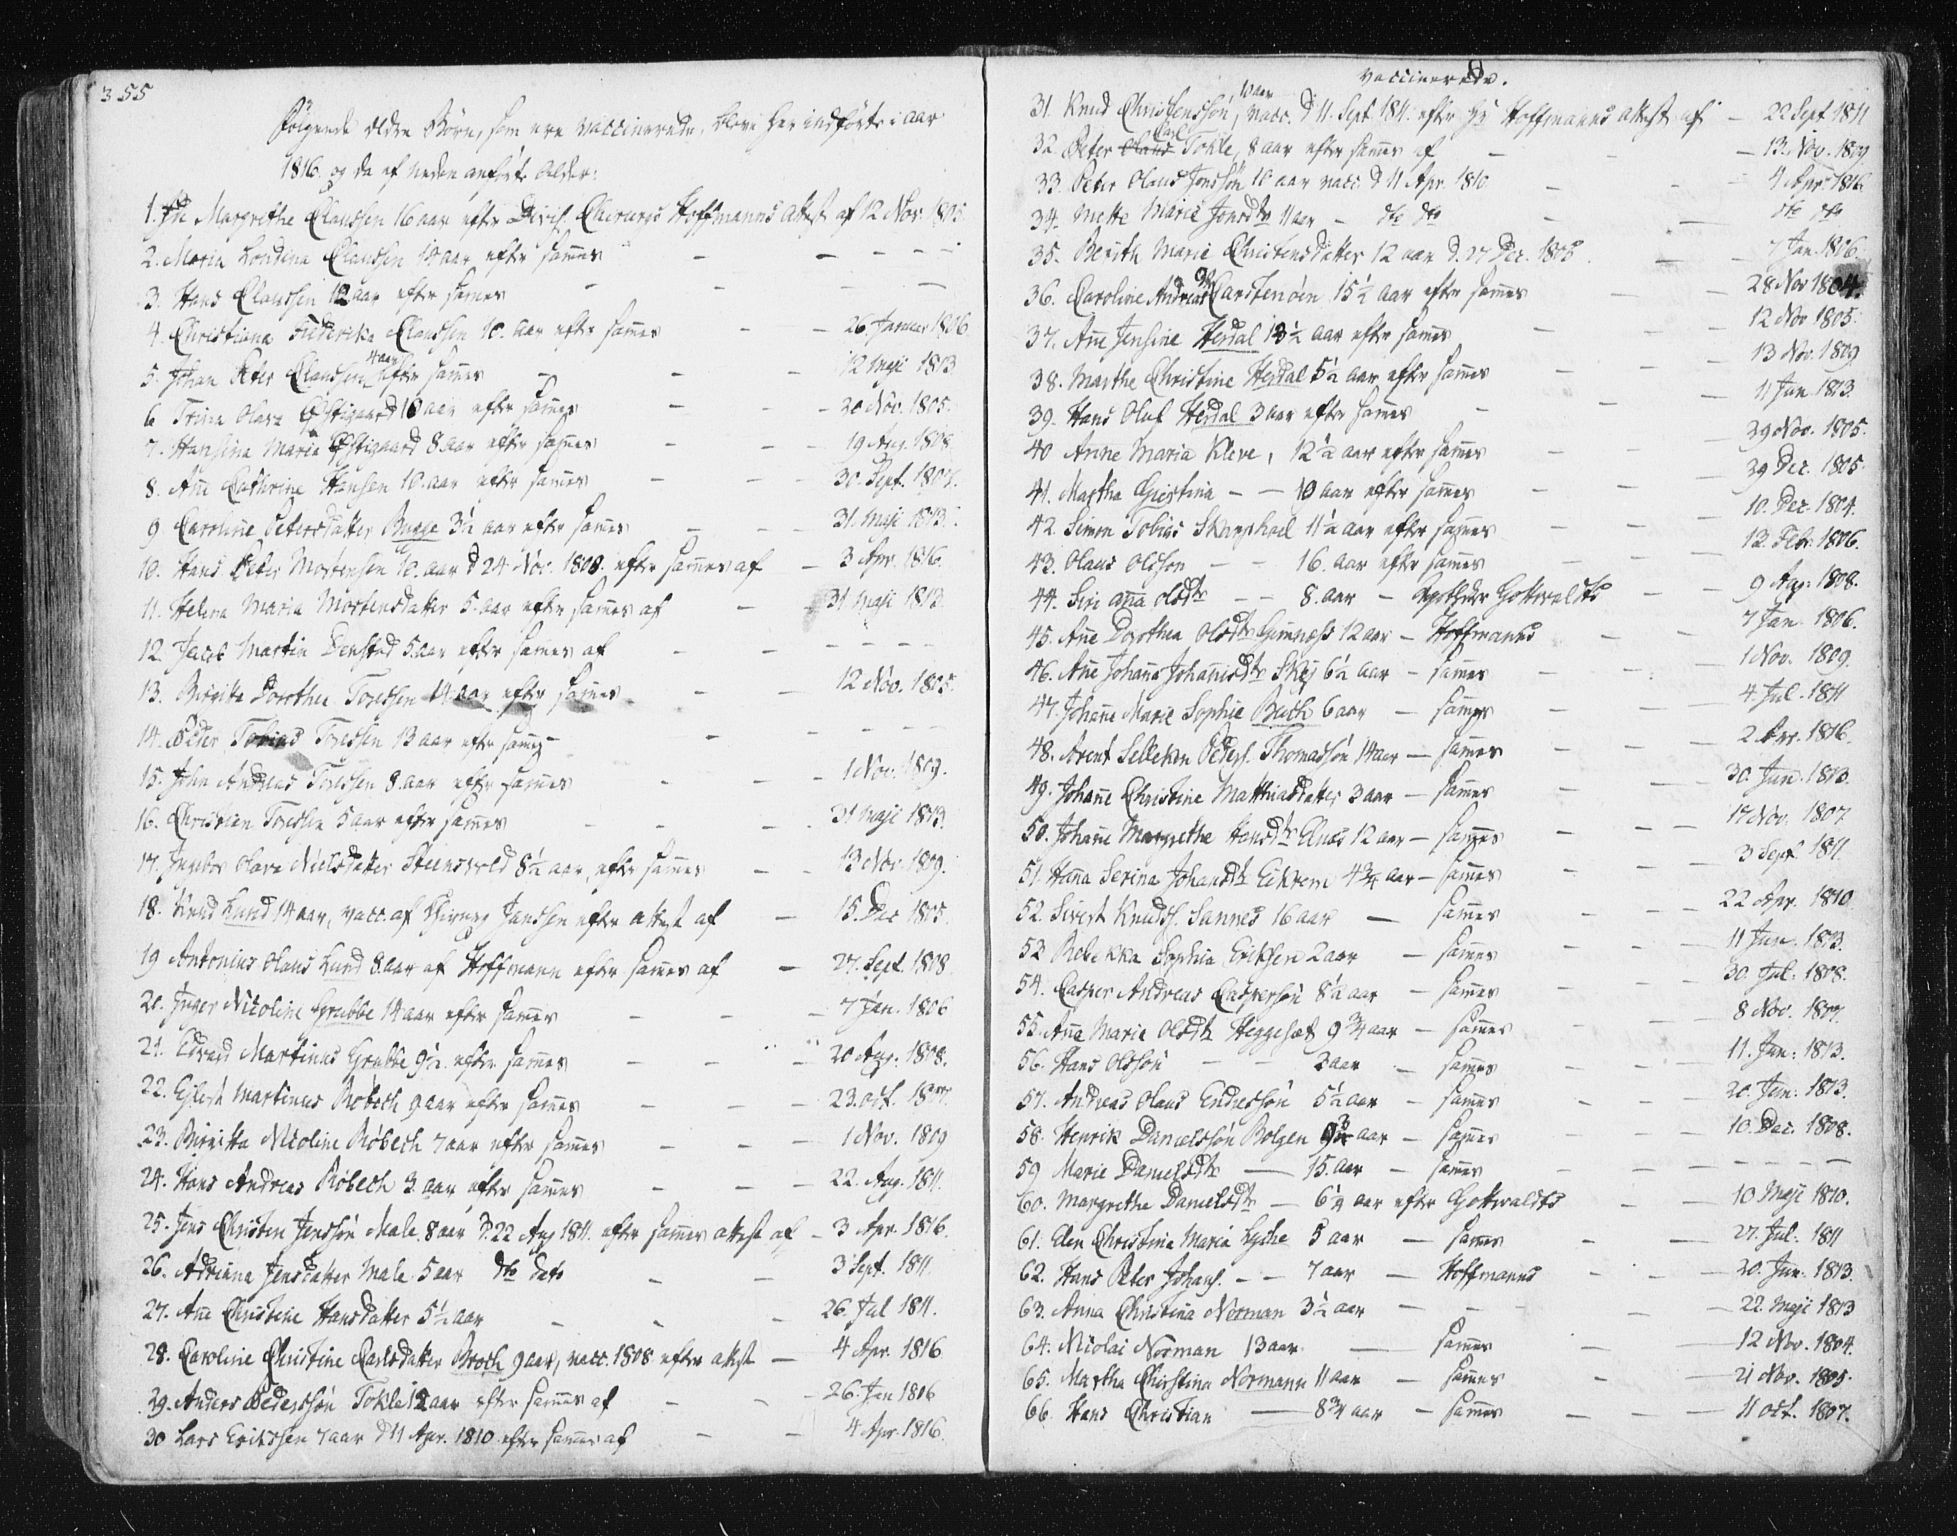 355
Følgende eldre Børn, som ere vaccinerede, blive her indførte i aar
1816. og da af neden anførte Alder:
1. Margrethe Claussen 16 aar efter Chirurgs Hoffmanns Attest af 12 Nov. 1805.
2. Maria Claussen 14 aar efter sam̄es — — — —
3. Hans Claussen 12 aar efter sam̄es — — —
4. Christiana Friderika Claussen 10. aar efter sam̄es — — 26. Januar 1806
5. Johan Peter Claussen 4 aar efter sam̄es — — — 12 Maji 1813
6 Trine Olava Østigaard 10 aar efter sam̄es — — — 20 Nov. 1805.
7. Hansina Maria Østigaard 8. aar efter sam̄es — — 19 Aug. 1808
8. An̄e Cathrine Hansen 10. aar efter sam̄es — — — 30. Sept. 1807.
9 Caroline Petersdatter Bugge 3½ aar efter sam̄es — — 31. Maji 1813.
10. Hans Peter Mortensen 10. aar d 24 Nov. 1808. efter sam̄es af — 3 Apr. 1816.
11. Helena Maria Mortensdatter 5. aar efter sam̄es af — — 31 Maji 1813.
12. Jacob Martin Denstad 5. aar efter sam̄es af — — — — —
13. Birgitte Dorothea Toressen 14 aar efter sam̄es — — 12 Nov. 1805.
14. Peder Tobias Toressen 13 aar efter sam̄es — — — — —
15. John Andreas Toressen 8. aar efter sam̄es — — — 1 Nov. 1809.
16. Christian Toressen 5 aar efter sam̄es — — — 31 Maji 1813.
17. Ingebor Olava Nielsdatter Steensvold 8½ aar, efter sam̄es — — 13 Nov. 1809.
18. Knud Lund 14 aar, vacc. af Janssen efter Attest af — 15. Dec 1805.
19 Antonius Olaus Lund 8. aar af Hoffmann efter sam̄es af — 27. Sept. 1808.
20. Inger Nicoline Grubbe 14 aar efter sam̄es — — — 7 Jan. 1806
21. Edvard Martinus Grubbe 9½ efter sam̄es — — — 20 Aug. 1808.
22. Martinus Röbech 9 aar efter sam̄es — — — 23. Oct. 1807.
23. Birgitta Nicoline Röbech 7 aar efter sam̄es — — — 1 Nov. 1809
24. Hans Andreas Röbech 3 aar efter sam̄es — — — 22. Aug. 1811.
25. Jens Christen Jenssön Male. 8 aar d. 22 Aug 1811. efter sam̄es Attest af — 3 Apr. 1816.
26. Adriana Jensdatter Male. 5 aar dto dato — — 3 Sept. 1811.
27. An̄e Christine Hansdatter 5½ aar — — — 26. Jul 1811.
28. Caroline Christine Carlsdatter Broch 9 aar, vacc. 1808 efter Attest — 4 Apr. 1816
29. Anders Pederssön Tokle 12 aar efter sam̄es af — — — 26. Jan 1806
30 Lars Erikssen 7 aar d 11 Apr. 1810 efter sam̄es af — — 4 Apr. 1816.
vaccinerede.
31. Knud Christenssön, 10 aar vacc. d 11. Sept 1811. efter Hoffmanns Attest af — 22 Sept 1811
32. Peter Olaus Carl Tokle, 8 aar efter sam̄es af — — — 13. Nov. 1809
33. Peter Olaus Jonssön 10 aar vacc. d 11 Apr. 1810 — — — 4 Apr. 1816
34. Mette Marie Jonsdtr 11 aar — dto dto — — dto dto
35. Berith Marie Christensdatter 12 aar d. 27 Dec. 1805. — — 7 Jan. 1806.
36. Caroline Andrea Carstensen 15½ aar efter sam̄es — — 28 Nov 1804.
37. An̄e Jensine Herdal 13½ aar efter sam̄es — — 12 Nov 1805.
38. Marthe Christine Herdal 5½ aar efter sam̄es — — 13 Nov. 1809
39. Hans Oluf Herdal 3 aar efter sam̄es — — — 11 Jun. 1813.
40 Anne Maria Kleve, 12½ aar efter sam̄es — — — 29 Nov. 1805.
41. Martha Christina — — 10 aar efter sam̄es — — — 29 Dec. 1805.
42. Simon Tobias 11½ aar efter sam̄es — — — 10. Dec. 1804.
43. Olaus Olsson — — 16. aar efter sam̄es — — — 12. Febr. 1806.
44. Siri An̄a Olsdtr — — 8. aar — Apotheker Gottwaldts — — 9 Apr. 1808.
45. An̄e Dorothea Olsdtr Gimnæss 12 aar — Hoffmanns — — 7 Jan. 1806.
46. An̄e Johan̄e Johan̄isdtr 6½ aar — sam̄es — — 1 Nov. 1809.
47. Johan̄e Marie Sophie Bach 6 aar — sam̄es — — — 4 Jul. 1811
48. Arent Peders. Thomassön 14 aar — sam̄es — — — 2 Apr. 1816.
49. Johan̄e Christine Matthiasdatter 3 aar — sam̄es — — — 30. Jun. 1813.
50. Johan̄e Margrethe Hansdtr 12 aar — sam̄es — — — 17 Nov. 1807
51. Han̄a Serina Johansdtr Eikrem 4¾ aar — sam̄es — — — 3 Sept 1811.
52. Sivert Knuds. Sannes 16 aar — sam̄es — — — 22 Apr. 1810
53 Rebekka Sophia Eriksen 2 aar — sam̄es — — — 11 Jun. 1813.
54. Casper Andreas Casperssön 8½ aar — sam̄es — — — 30. Jul. 1808.
55. An̄a Marie Olsdtr Heggeset 9¾ aar — sam̄es — — — 8 Nov. 1807.
56. Hans Olssön — — 3 aar — sam̄es — — — 11. Jun. 1813.
57. Andreas Olaus Endressön 5½ aar — sam̄es — — — 20. Jun. 1813.
58. Henrik Danielssön Bolgen aar — sam̄es — — — 10. Dec. 1808.
59 Marie Danielsdtr — 15. aar — sam̄es — — — — — —
60. Margrethe Danielsdtr — 6½ aar efter Gottwaldts — — 10 Maji 1810.
61. Elen Christina Maria Lyche 5 aar — sam̄es — — 27. Jul. 1811
62. Hans Peter Johans. — — 7 aar — Hoffmanns — — — 20. Jun. 1813.
63. Anna Christina Norman 3½ aar — — — — 22. Maji 1813
64. Nicolai Norman 13 aar — sam̄es — — 12 Nov. 1804.
65. Martha Christina Normann 11 aar — sam̄es — — 21 Nov. 1805.
66. Hans Christian — 8¾ aar — sam̄es — — — 11 Oct. 1807.